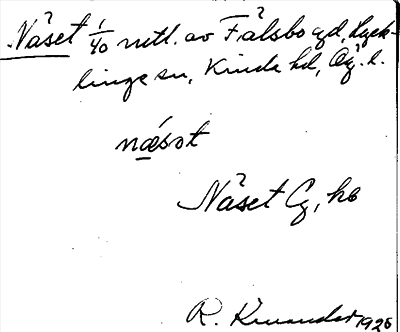 Näset 1/40 mtl. av Fålsbo gd, Tyck-
linge sn, Kinda hd, Ög. l.
næsət
Näset Cg, hs
R. 1926